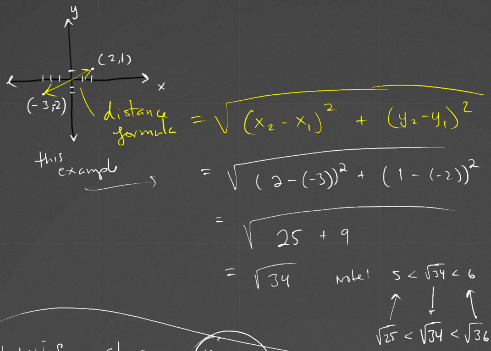 y
(2,1)
x
(-3,-2)
distance formula = √((x₂ - x₁)² + (y₂ - y₁)²)
this example
= √((2 - (-3))² + (1 - (-2))²)
= √(25 + 9)
= √34 note! 5 < √34 < 6
√25 < √34 < √36